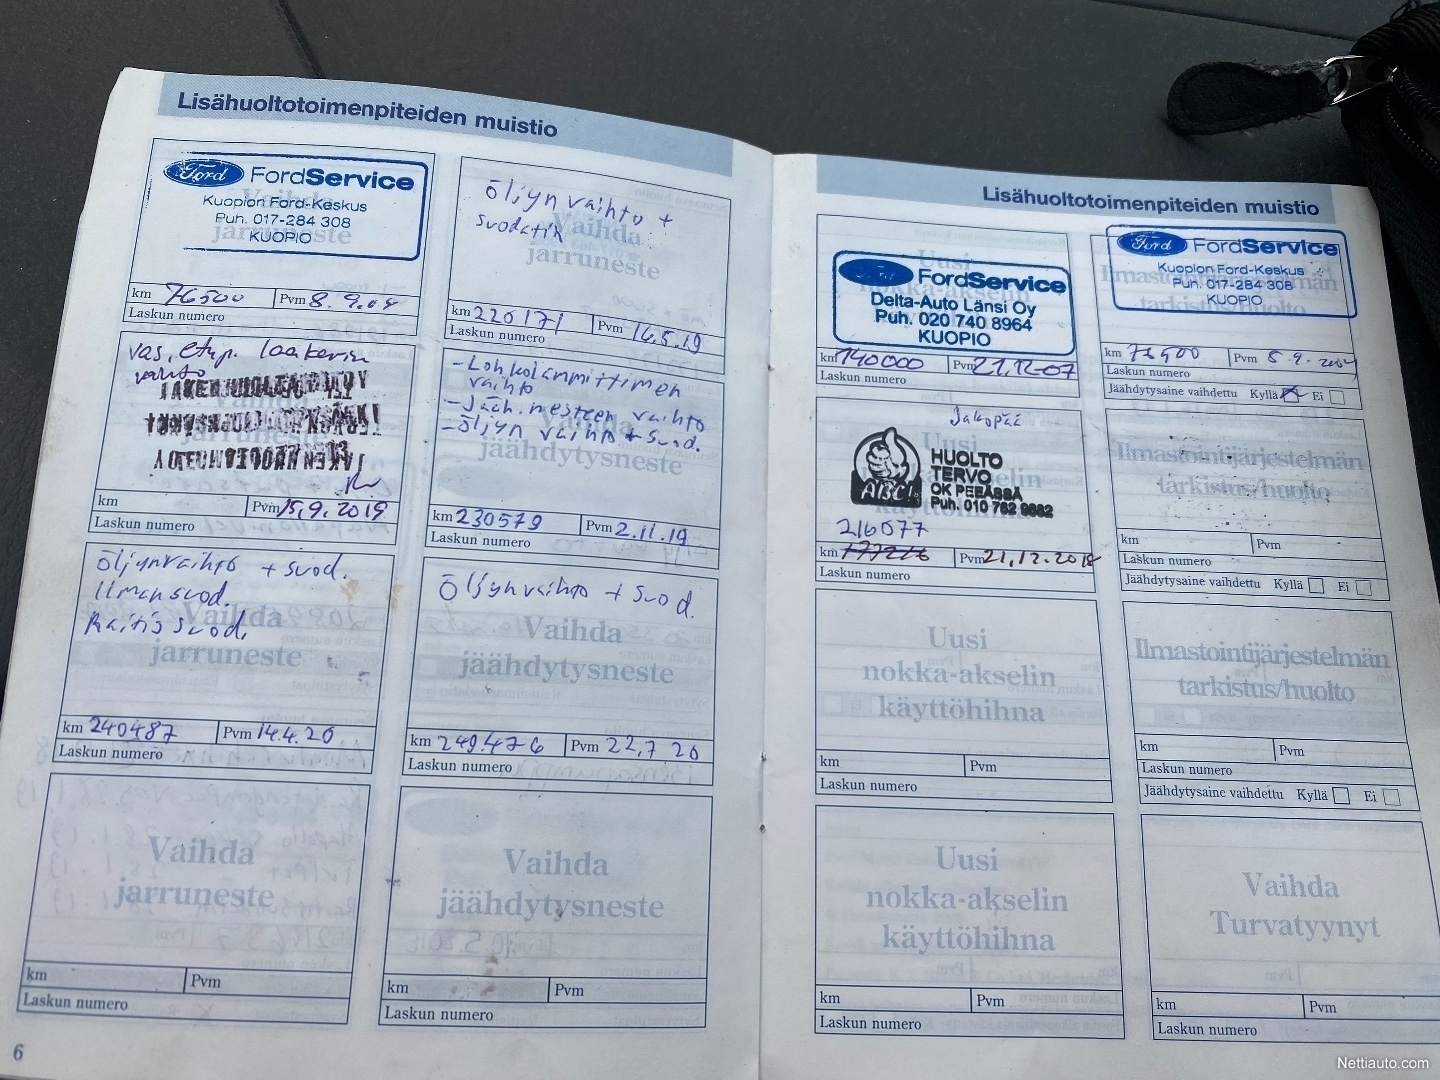 Lisähuoltotoimenpiteiden muistio
Ford FordService
Kuopion Ford-Keskus
Puh. 017-284 308
KUOPIO
Vaihda
jarruneste
km 76500 Pvm 8.9.04
Laskun numero
vas. etup. laakerin
vaihto
km Pvm 15.9.2019
Laskun numero
öljynvaihto + suod.
Ilmansuod.
Raitis suod.
Vaihda
jarruneste
km 240487 Pvm 14.4.20
Laskun numero
Vaihda
jarruneste
km Pvm
Laskun numero
6
öljyn vaihto +
suodatin
Vaihda
jarruneste
km 220171 Pvm 14.5.19
Laskun numero
- Lohkolämmittimen
vaihto
- Jääh.nesteen vaihto
- öljyn vaihto + suod.
jäähdytysneste
km 230579 Pvm 2.11.19
Laskun numero
Öljynvaihto + suod.
Vaihda
jäähdytysneste
km 249.476 Pvm 22,7 20
Laskun numero
Vaihda
jäähdytysneste
km Pvm
Laskun numero
Lisähuoltotoimenpiteiden muistio
Uusi
nokka-akselin
Ford FordService
Delta-Auto Länsi Oy
Puh. 020 740 8964
KUOPIO
km 140000 Pvm 21.12-07
Laskun numero
Jakopää
ABC
HUOLTO
TERVO
OK PEEÄSSÄ
Puh. 010 762 9882
Uusi
käyttöhihna
216077
km 177216 Pvm 21.12.2018
Laskun numero
Uusi
nokka-akselin
käyttöhihna
km Pvm
Laskun numero
Uusi
nokka-akselin
käyttöhihna
km Pvm
Laskun numero
Ford FordService
Kuopion Ford-Keskus
Puh. 017-284 308
KUOPIO
Ilmastointijärjestelmän
tarkistus/huolto
km 76500 Pvm 8.9.2004
Laskun numero
Jäähdytysaine vaihdettu Kyllä Ei
Ilmastointijärjestelmän
tarkistus/huolto
km Pvm
Laskun numero
Jäähdytysaine vaihdettu Kyllä Ei
Ilmastointijärjestelmän
tarkistus/huolto
km Pvm
Laskun numero
Jäähdytysaine vaihdettu Kyllä Ei
Vaihda
Turvatyynyt
km Pvm
Laskun numero
Nettiauto.com